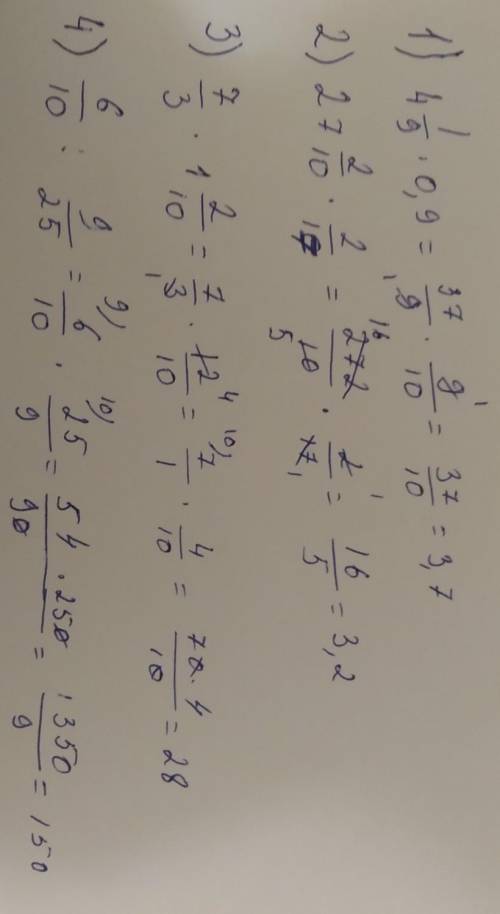 1) 4 1/9 · 0,9 = 37/9 · 9/10 = 37/10 = 3,7
2) 27 2/10 · 2/17 = 272/10 · 2/17 = 16/5 = 3,2
3) 7/3 · 1 2/10 = 7/3 · 12/10 = 7/1 · 4/10 = 70·4/10 = 28
4) 6/10 : 9/25 = 6/10 · 25/9 = 54·250/90 = 1350/9 = 150